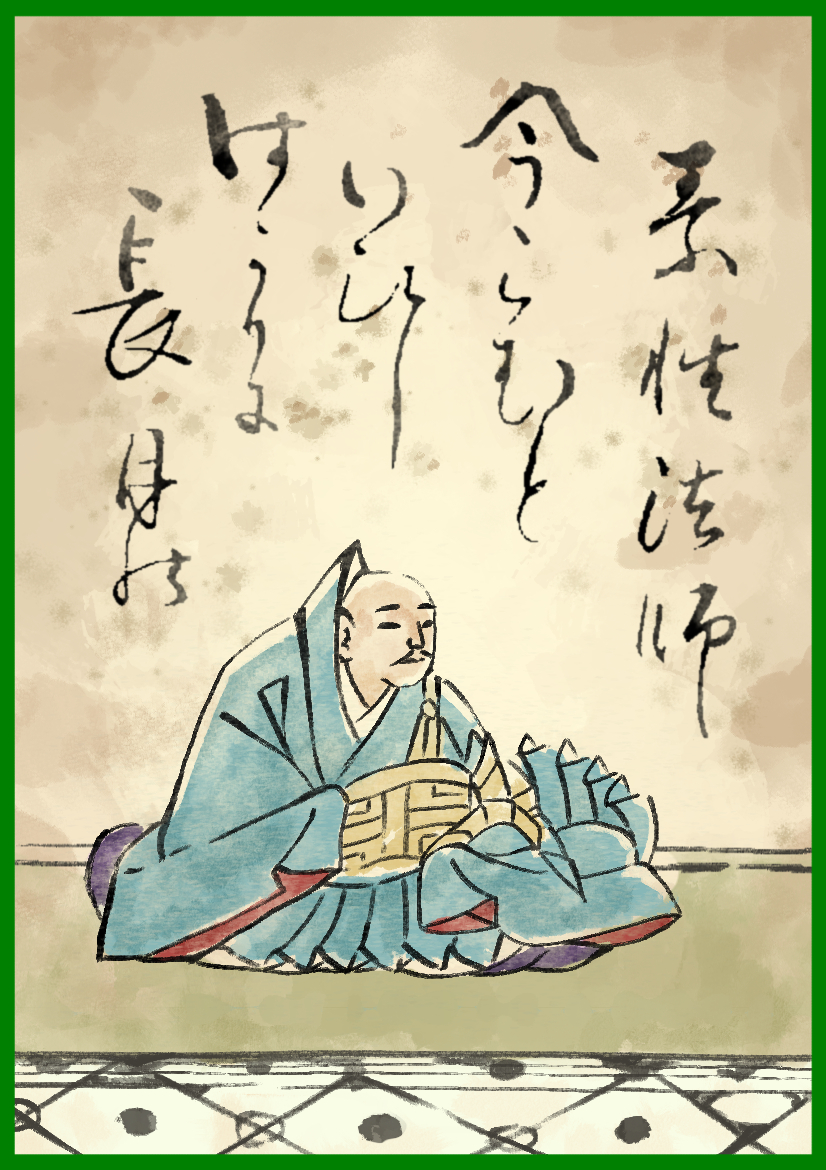 素性法師
今こむと
いひし
はかりに
長月の